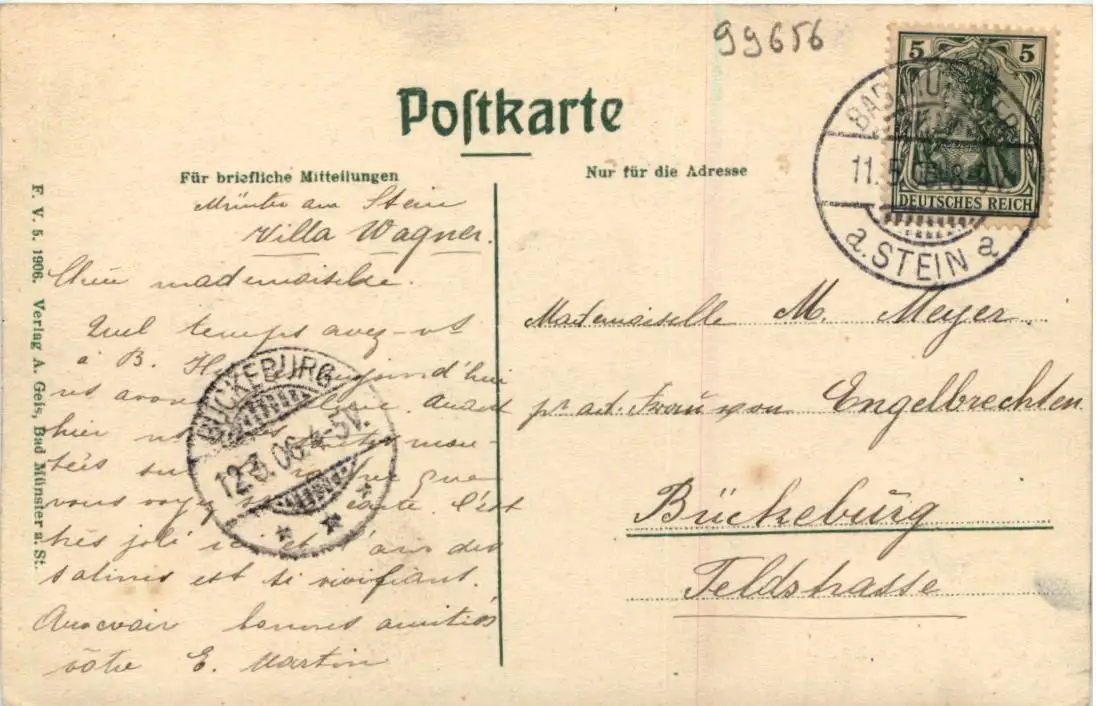 99656
Postkarte
Für briefliche Mitteilungen
Nur für die Adresse
5 5
DEUTSCHES REICH
BAD MÜNSTER
11.5. 8-9V.
a. STEIN a
Münster am Stein
Villa Wagner.
Chère mademoiselle.
Quel temps avez-vs
à B. aujourd'hui
ns avons Avant
hier ns mon-
tés sur que
vous voyez carte. C'est
très joli ici et l'air des
salines est si vivifiant.
Au revoir bonnes amitiés
vôtre E. Martin
BÜCKEBURG
12.5.06.4-5V.
Mademoiselle M. Meyer.
pr ad. Frau von Engelbrechten
Bückeburg
Feldstrasse
F. V. 5. 1906. Verlag A. Geis, Bad Münster a. St.